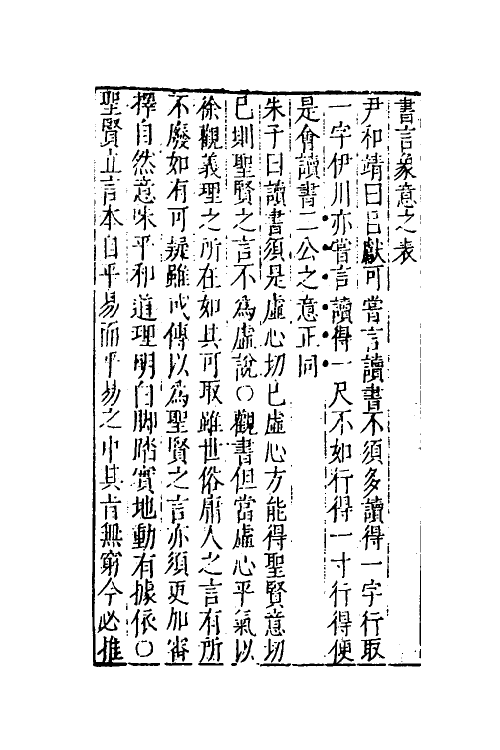 書言象意之表
尹和靖曰呂獻可嘗言讀書不須多讀得一字行取
一字伊川亦嘗言讀得一尺不如行得一寸行得便
是會讀書二公之意正同
朱子曰讀書須是虛心切己虛心方能得聖賢意切
己則聖賢之言不為虛說○觀書但當虛心平氣以
徐觀義理之所在如其可取雖世俗庸人之言有所
不廢如有可疑雖或傳以為聖賢之言亦須更加審
擇自然意味平和道理明白脚踏實地動有據依○
聖賢立言本自平易而平易之中其旨無窮今必推